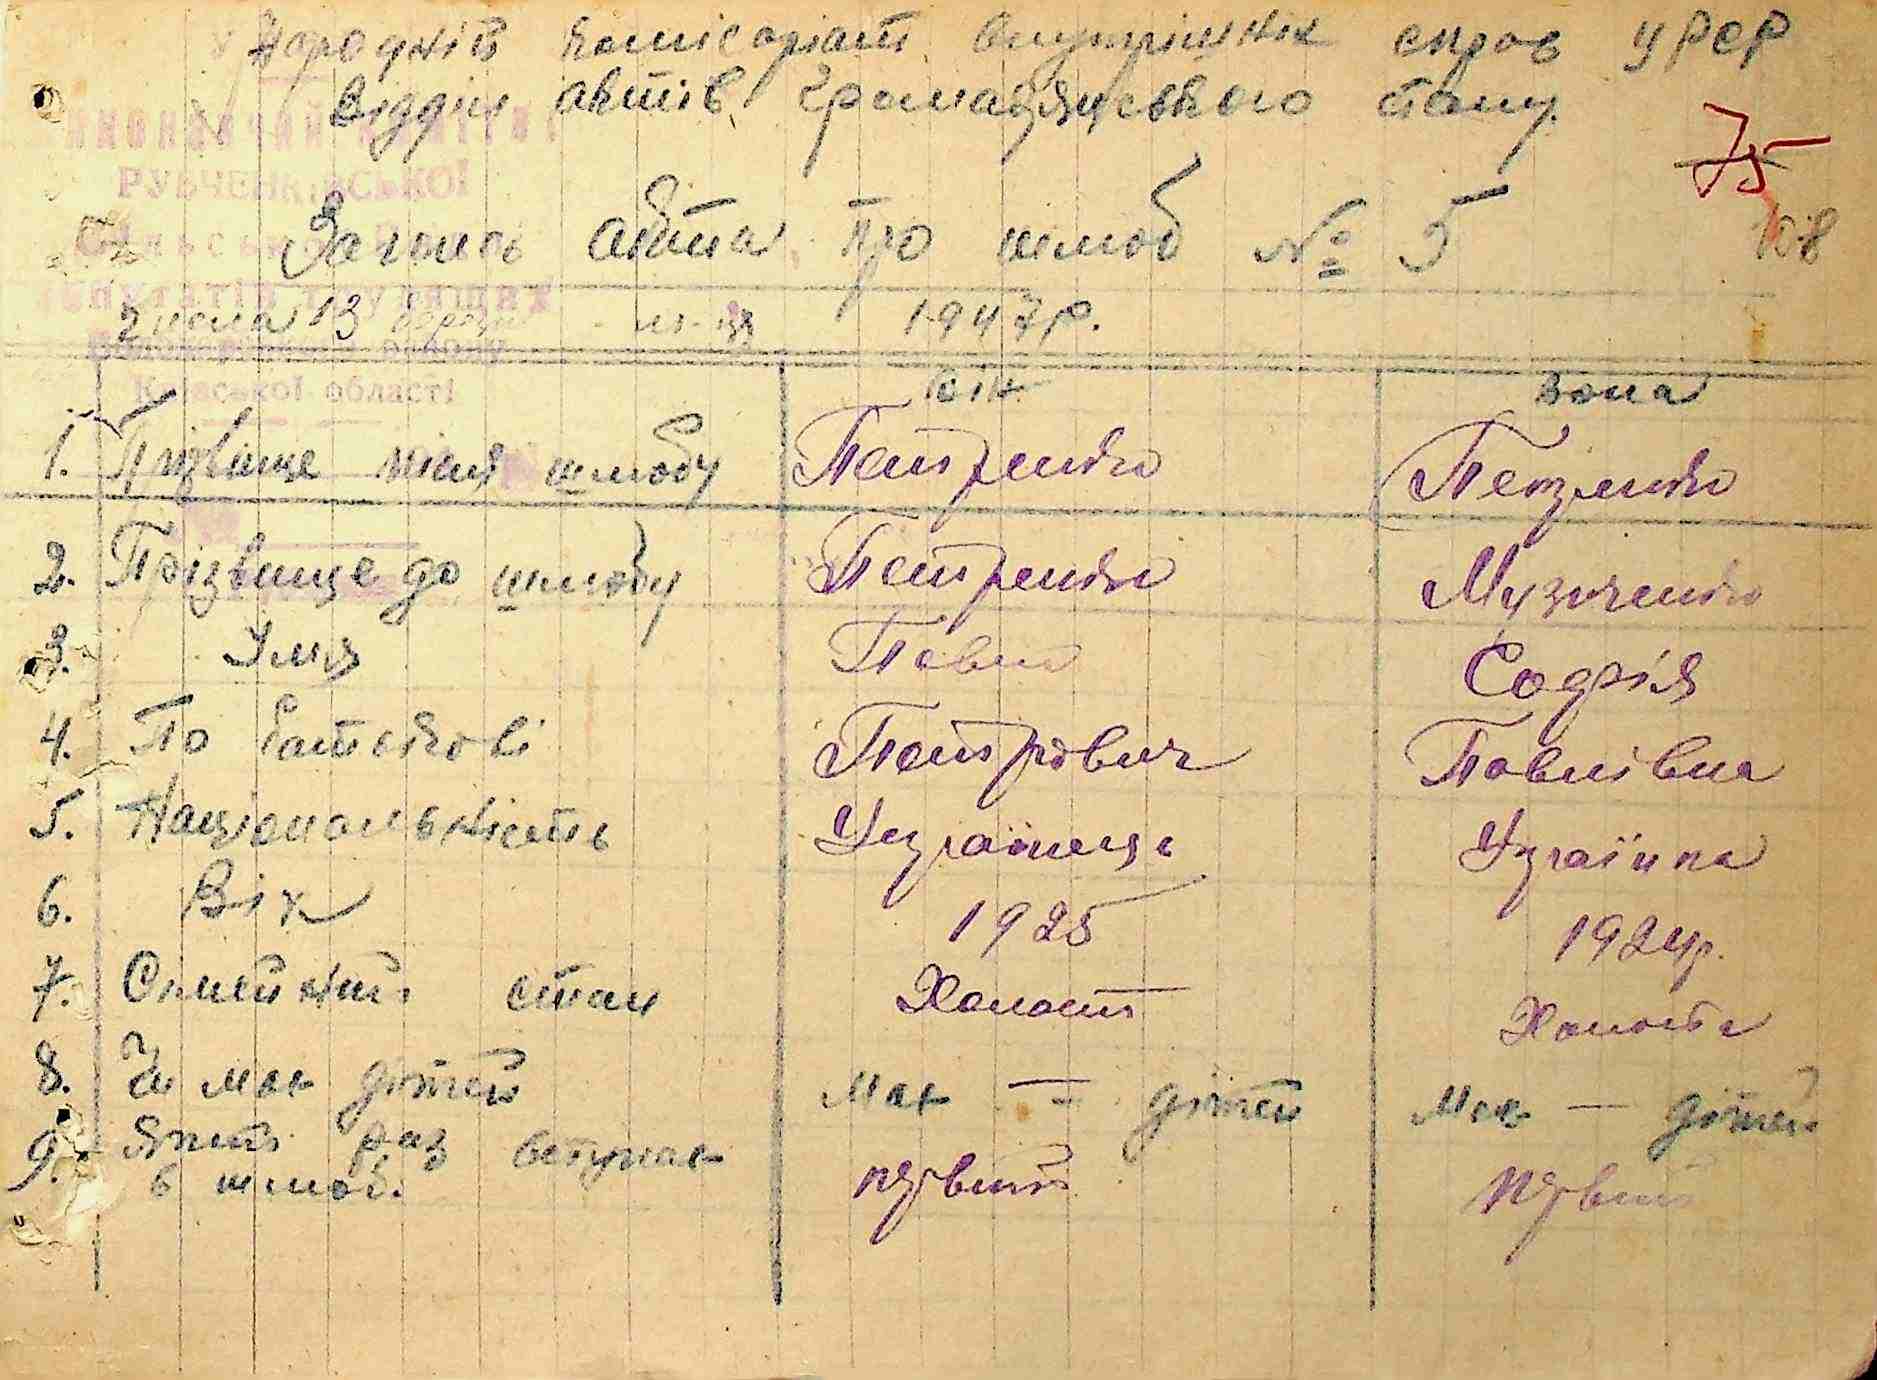 Народній комісаріат внутрішніх справ УРСР
Відділ актів громадянського стану.
75
ВИКОНАВЧИЙ КОМІТЕТ
РУБЧЕНКІВСЬКОЇ
Сільської Ради
депутатів трудящих
Київської області
Запись акта про шлюб № 5
108
Числа 13 березня м-ця 1947 р.
Він Вона
1. Прізвище після шлюбу Петренко Петренко
2. Прізвище до шлюбу Петренко Музиченко
3. Імя Павло Софія
4. По батькові Петрович Павлівна
5. Національність Українець Українка
6. Вік 1925 1924р.
7. Сімейний стан Холост Холоста
8. Чи має дітей має — дітей має — дітей
9. Який раз вступає первий первий
в шлюб.